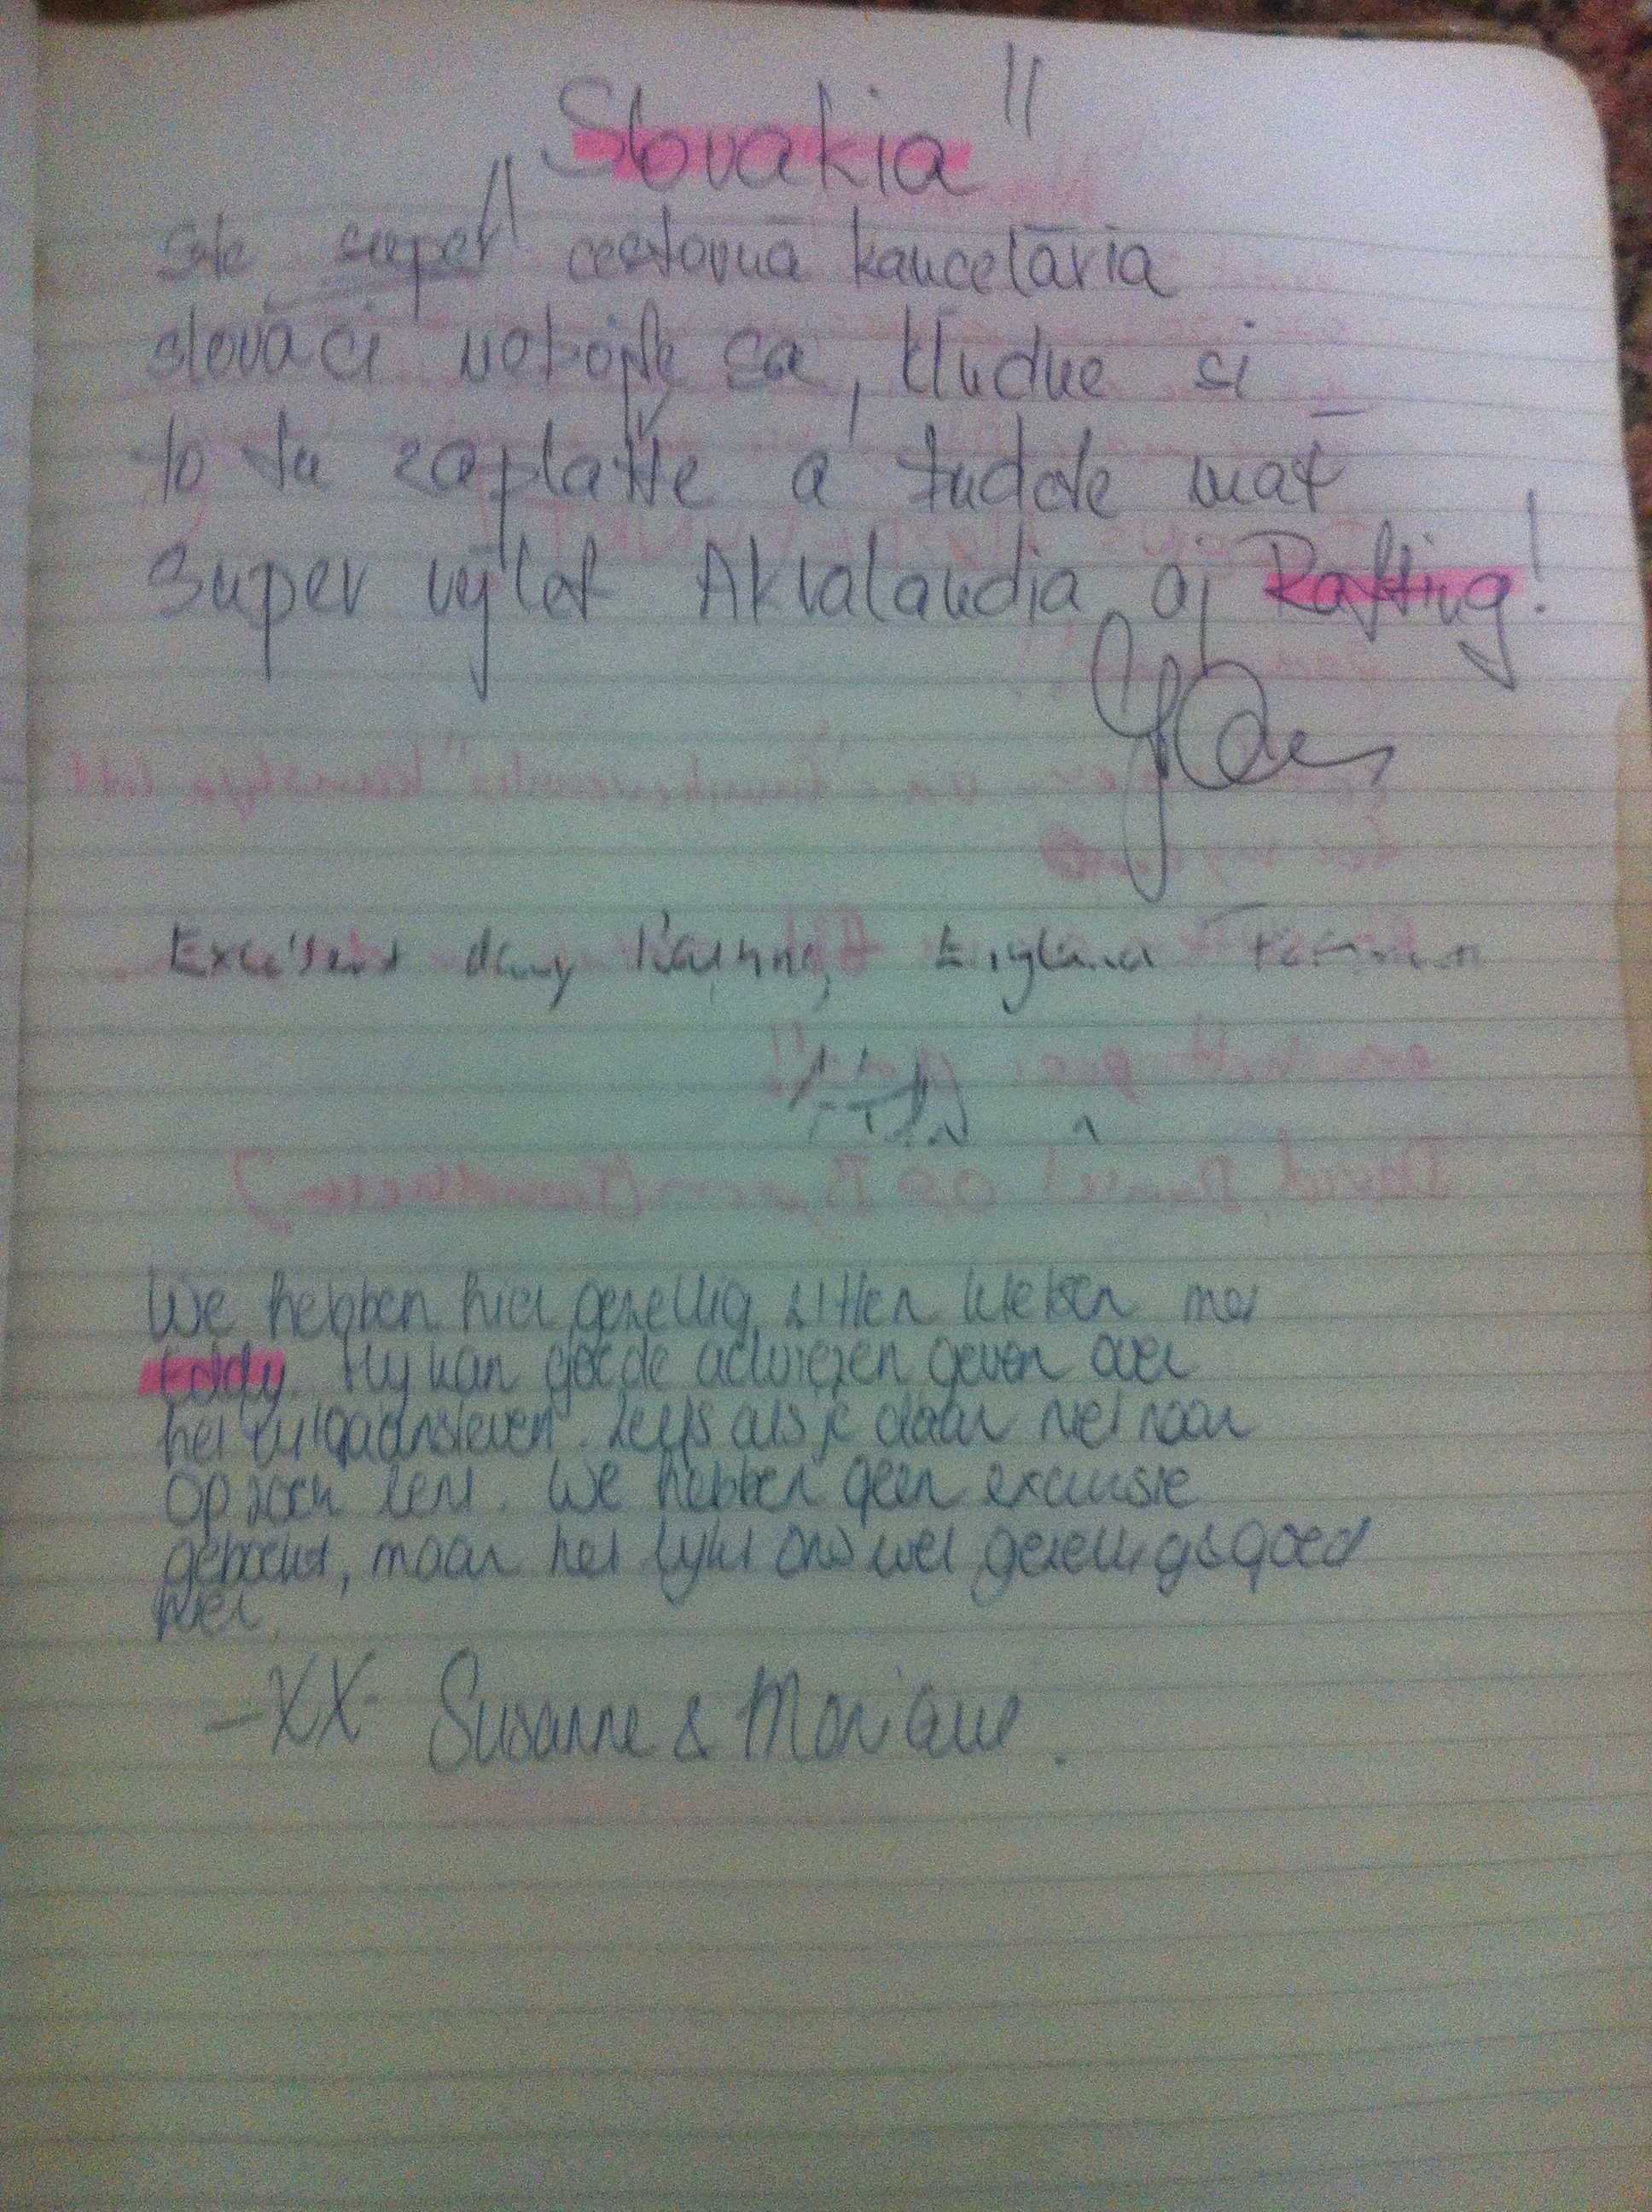 "Slovakia"
Ste super cestovná kancelária
slováci nebojte sa, kľudne si
to tu zaplaťte a budete mať
super výlet Akvalandia aj Rafting!
Excellent day Rafting, England
We hebben hier gezellig zitten kletsen met
Eddy. Hij kan goede adviezen geven over
het uitgaansleven. Zelfs als je daar niet naar
op zoek bent. We hebben geen excursie
geboekt, maar het lijkt ons wel gezellig &goed
hier
-XX- Susanne & Monique.